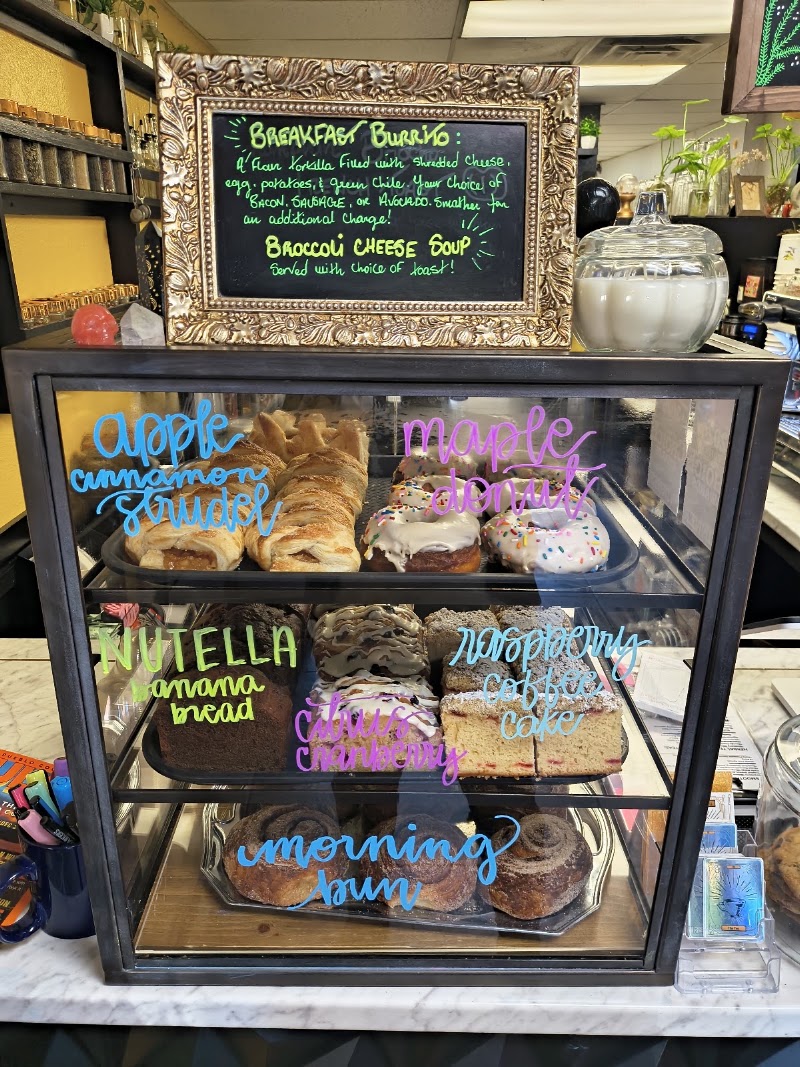 BREAKFAST BURRITO:
A flour tortilla filled with shredded cheese,
egg, potatoes, & green chile. Your choice of
BACON, SAUSAGE, OR AVOCADO. Smother for
an additional charge!
BROCCOLI CHEESE SOUP
Served with choice of toast!
apple
cinnamon
strudel
maple
donut
NUTELLA
banana
bread
citrus
cranberry
raspberry
coffee
cake
morning
bun